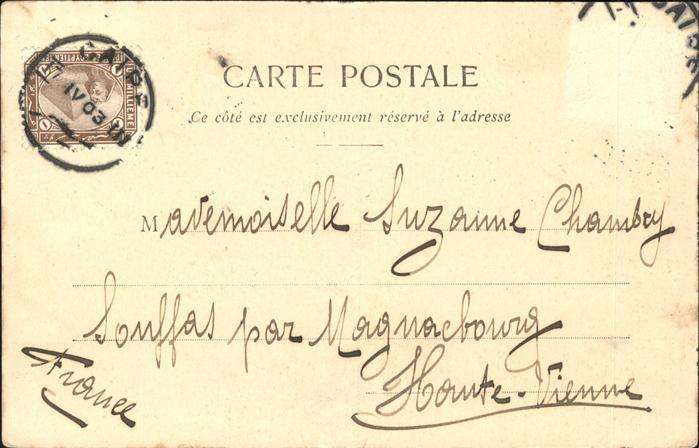 CARTE POSTALE
Ce côté est exclusivement réservé à l'adresse
Mademoiselle Suzanne Chambry
Souffas par Magnacbourg
Haute-Vienne
France